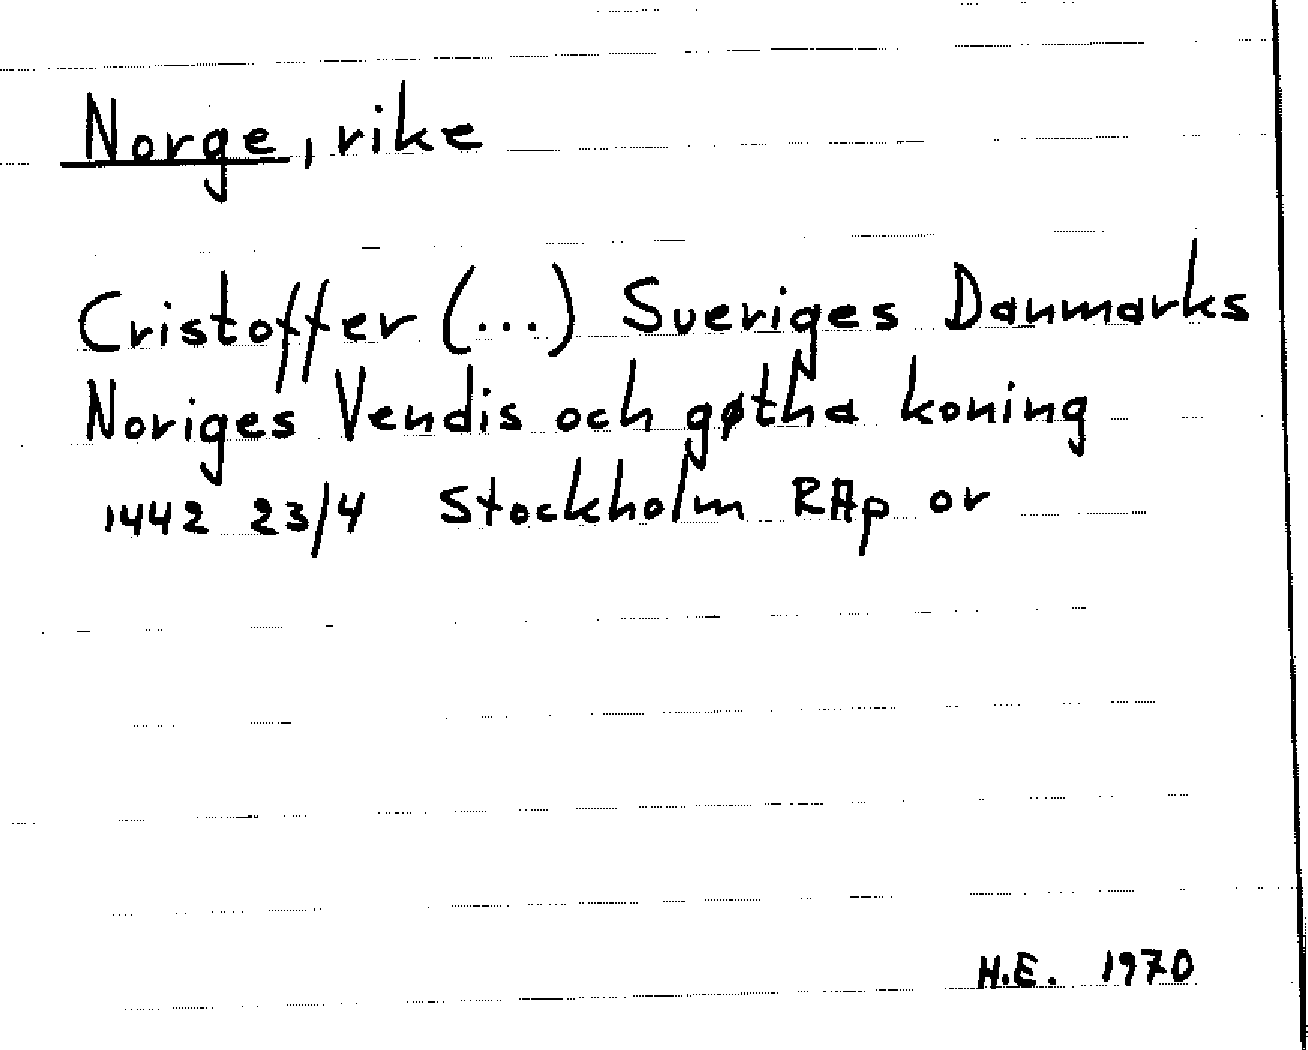 Norge, rike
Cristoffer (...) Sveriges Danmarks
Noriges Vendis och gøtha koning
1442 23/4 Stockholm RAp or
H.E. 1970